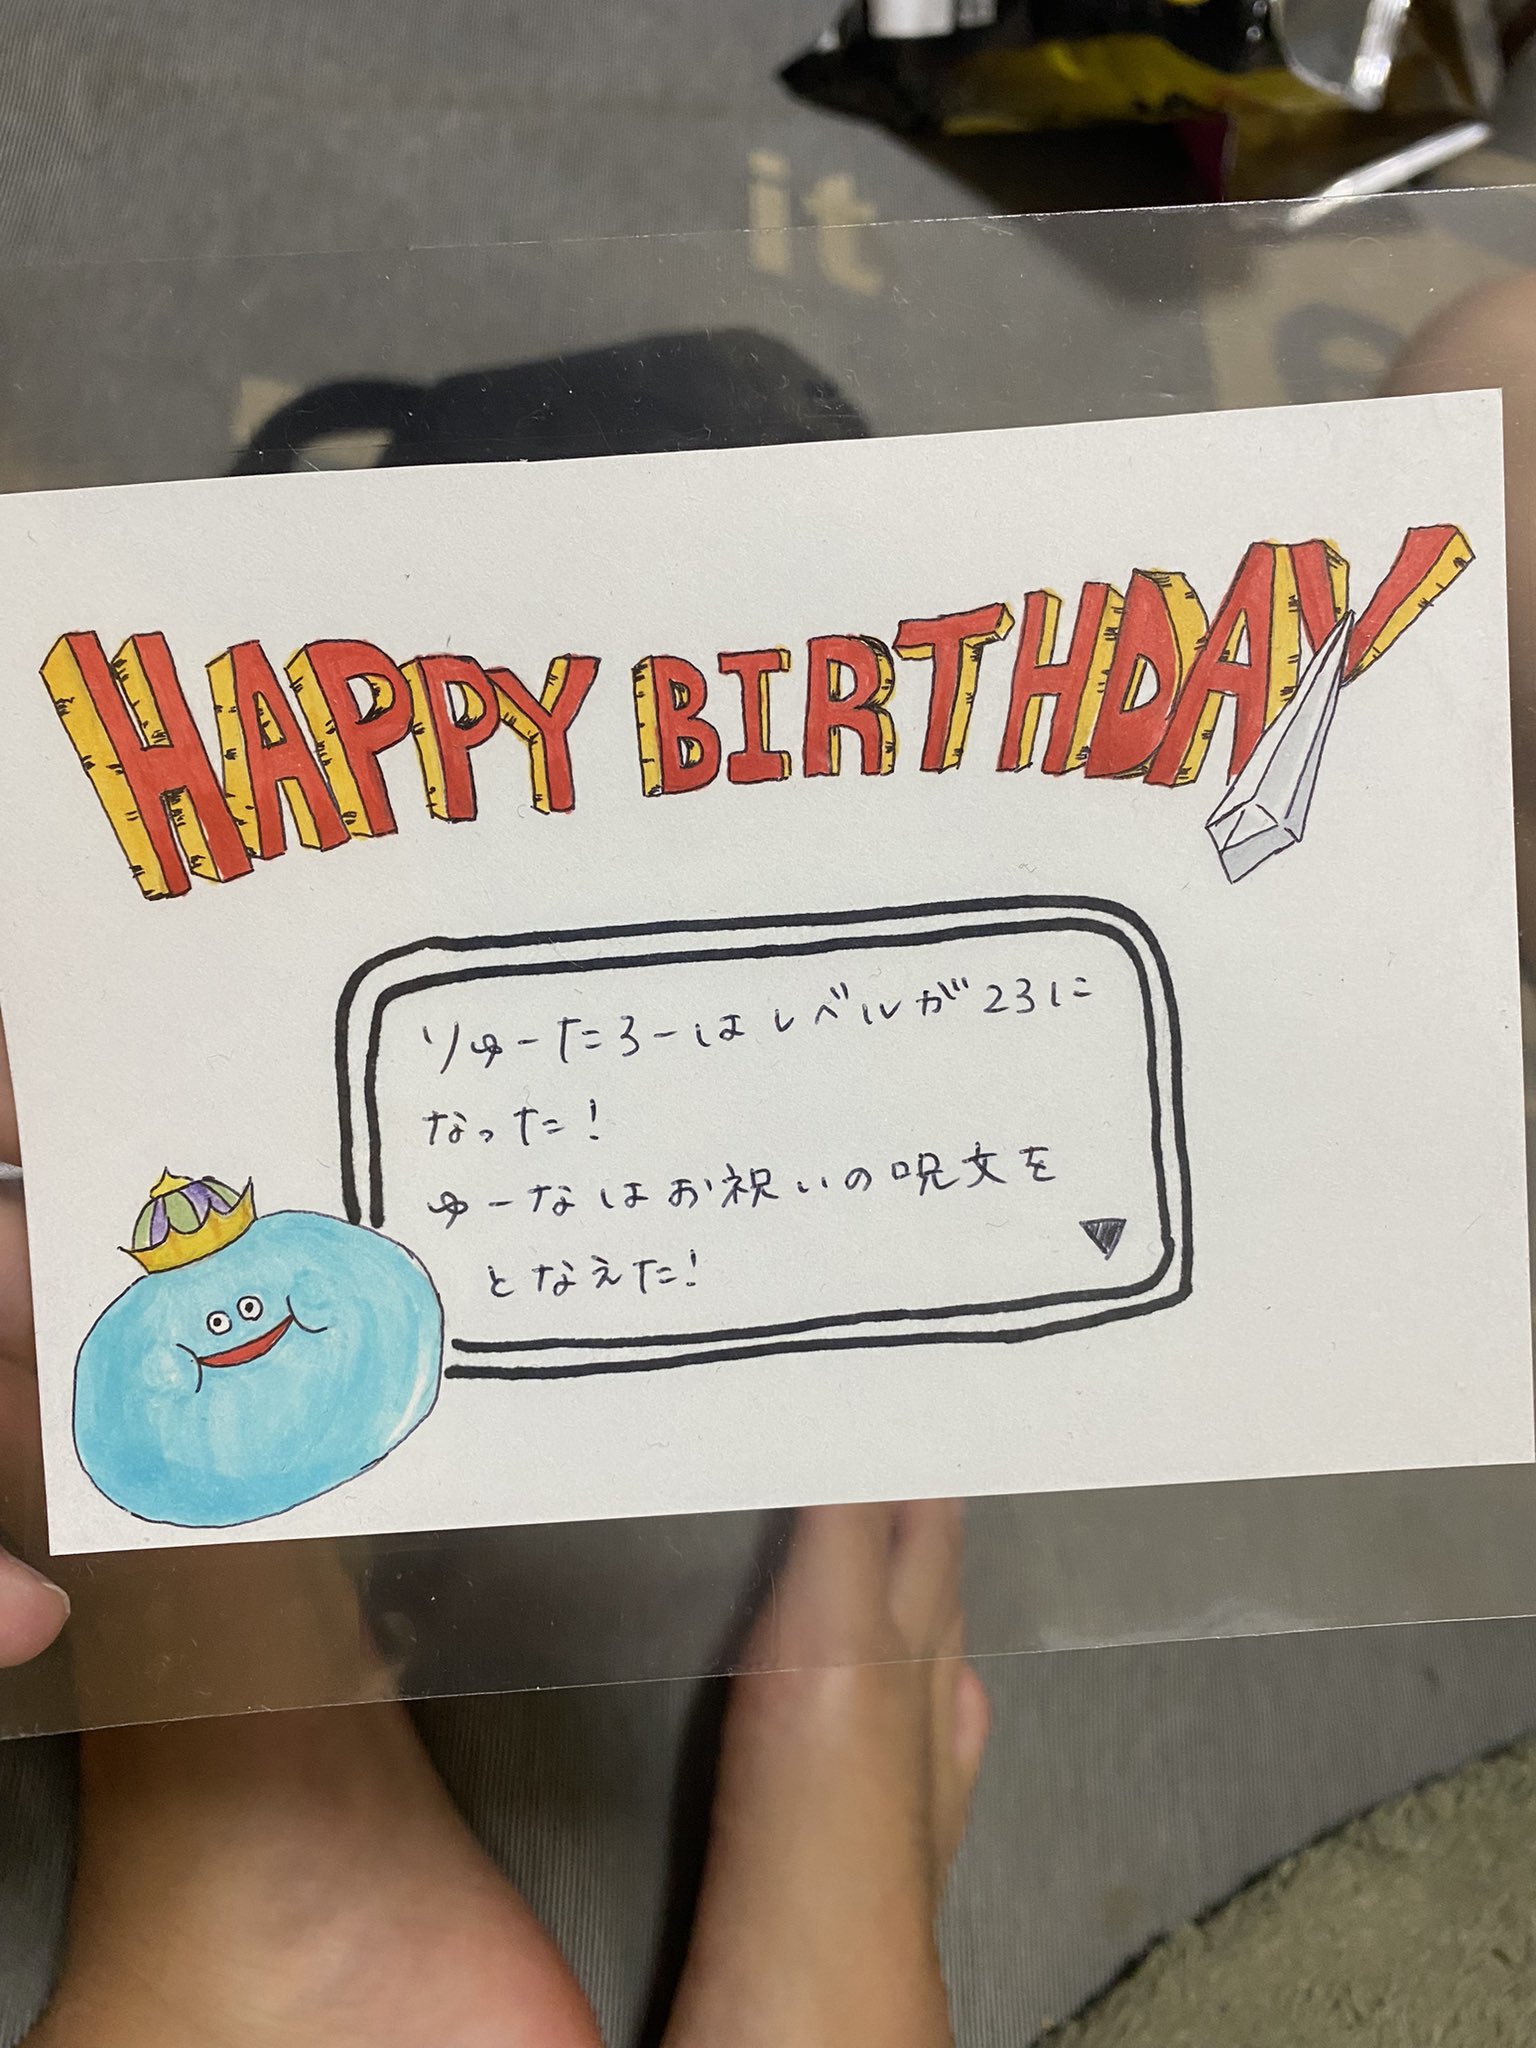 it
HAPPY BIRTHDAY
りゅーたろーはレベルが23に
なった!
ゆーなはお祝いの呪文を
となえた!